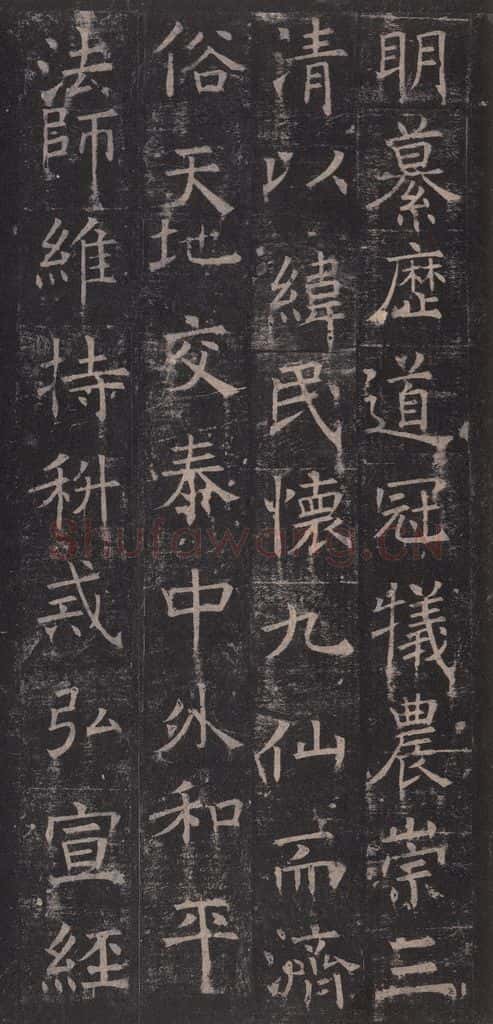 明纂歷道冠犧農崇三
清以緯民懷九仙而濟
俗天地交泰中外和平
法師維持科戒弘宣經
Shufawang.CN